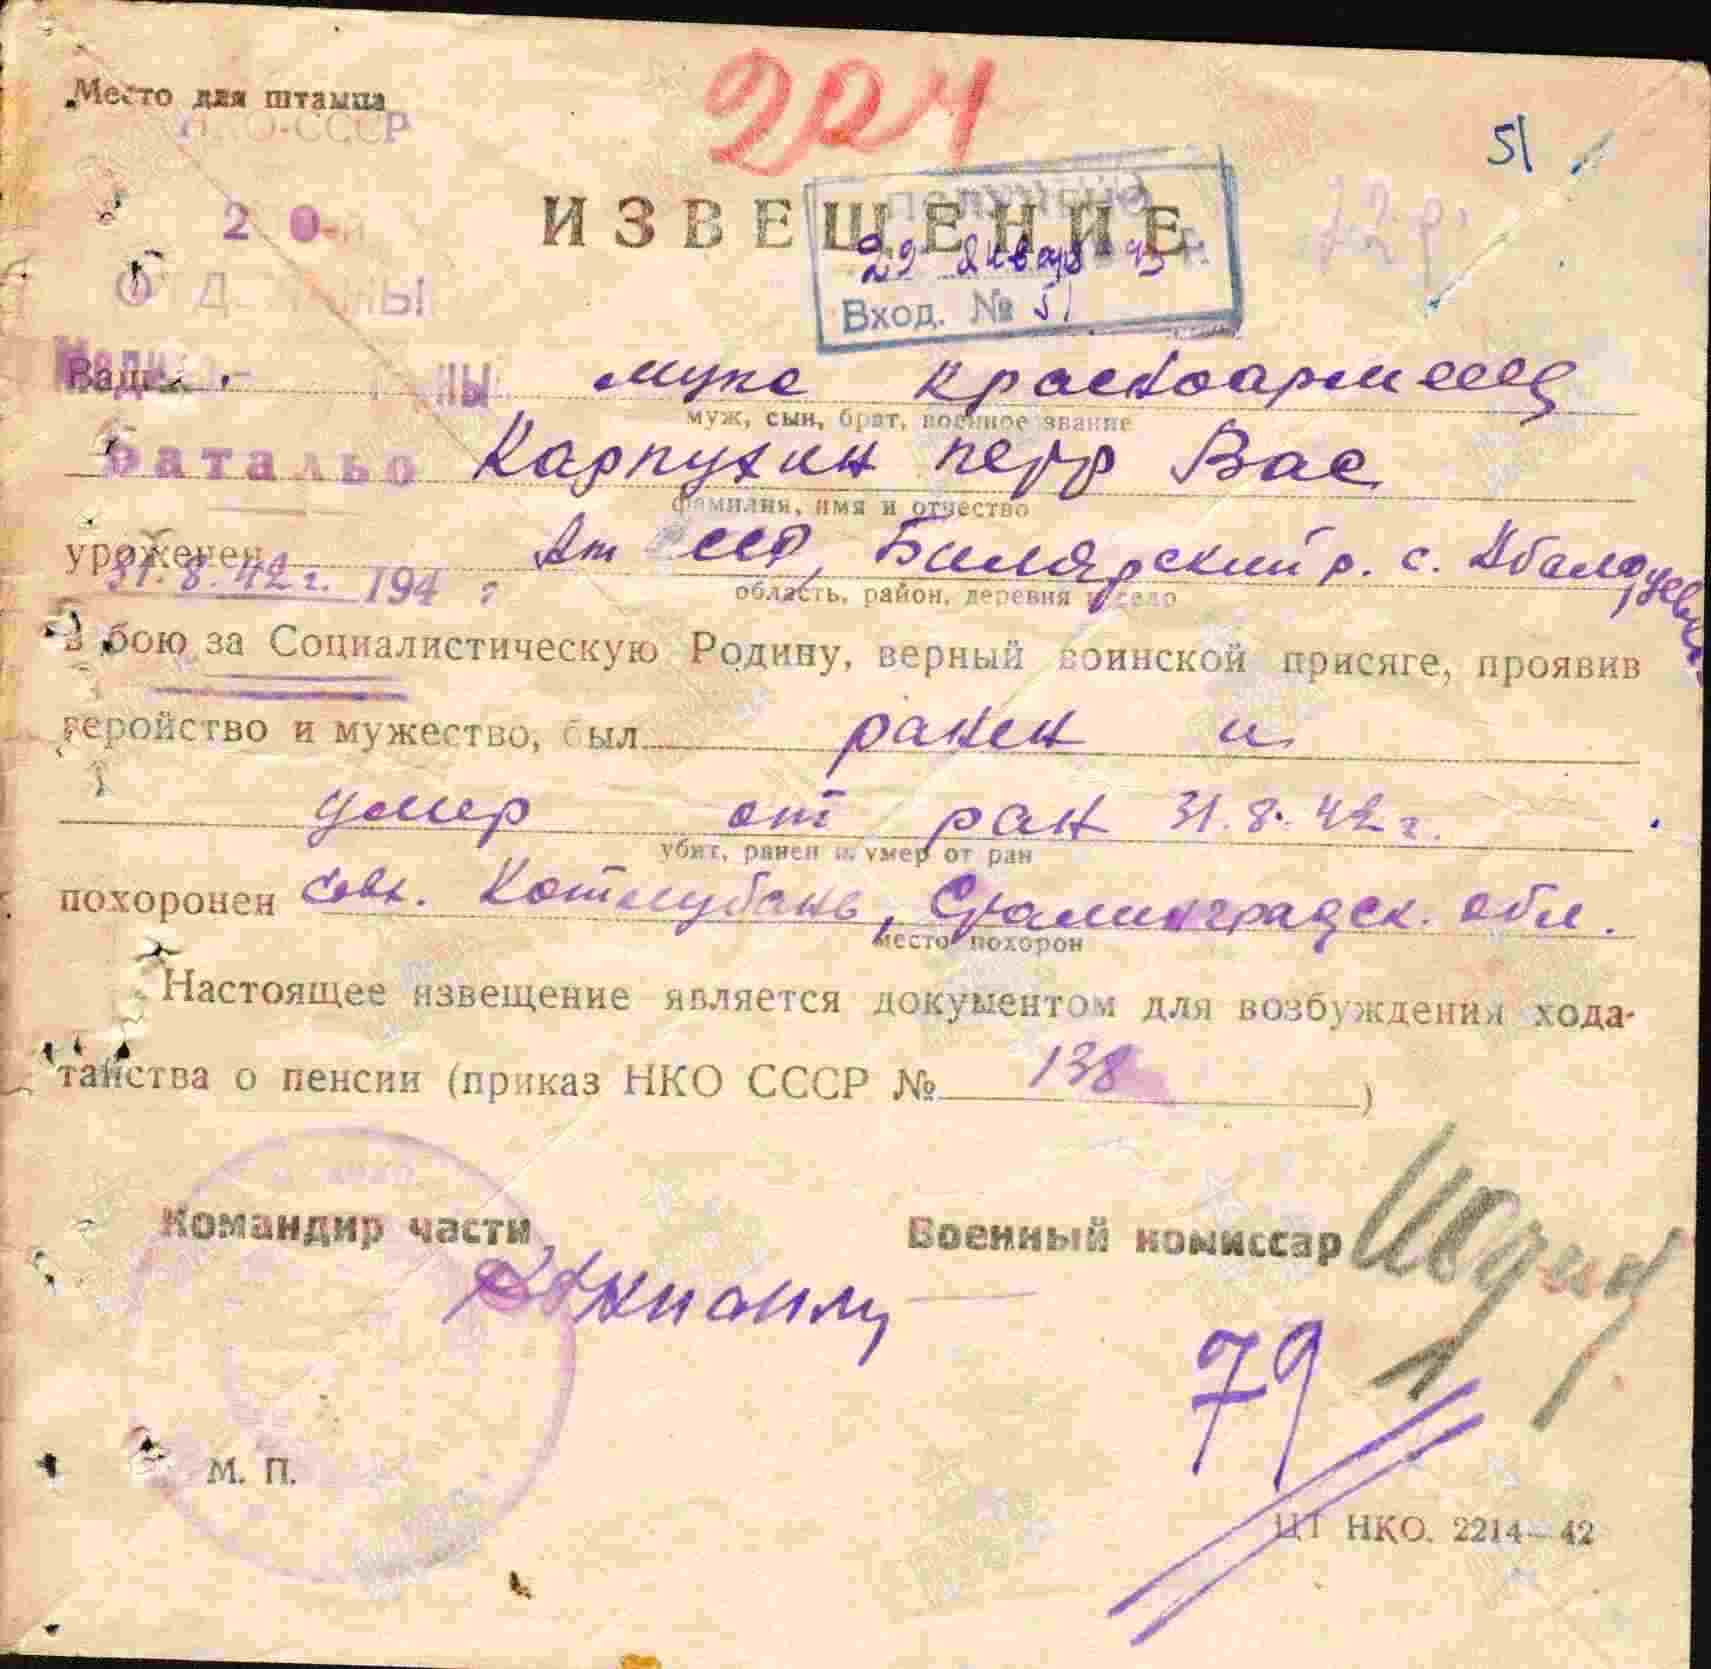 224
Место для штампа
НКО-СССР
51
20-й
ИЗВЕЩЕНИЕ
22 р.
22 января 43 г.
Вход. № 51
Ваш муж красноармеец
муж, сын, брат, военное звание
батальо Карпухин Петр Вас
фамилия, имя и отчество
уроженец Ат ССР, Билярский р. с.
область, район, деревня и село
31.8.42 г. 194 г
в бою за Социалистическую Родину, верный воинской присяге, проявив
геройство и мужество, был ранен и
умер от ран 31.8.42 г.
убит, ранен и умер от ран
похоронен совх. Котлубань, Сталинградск. обл.
место похорон
Настоящее извещение является документом для возбуждения хода-
тайства о пенсии (приказ НКО СССР № 138)
Командир части Военный комиссар
79 1
М. П.
ЦТ НКО. 2214—42